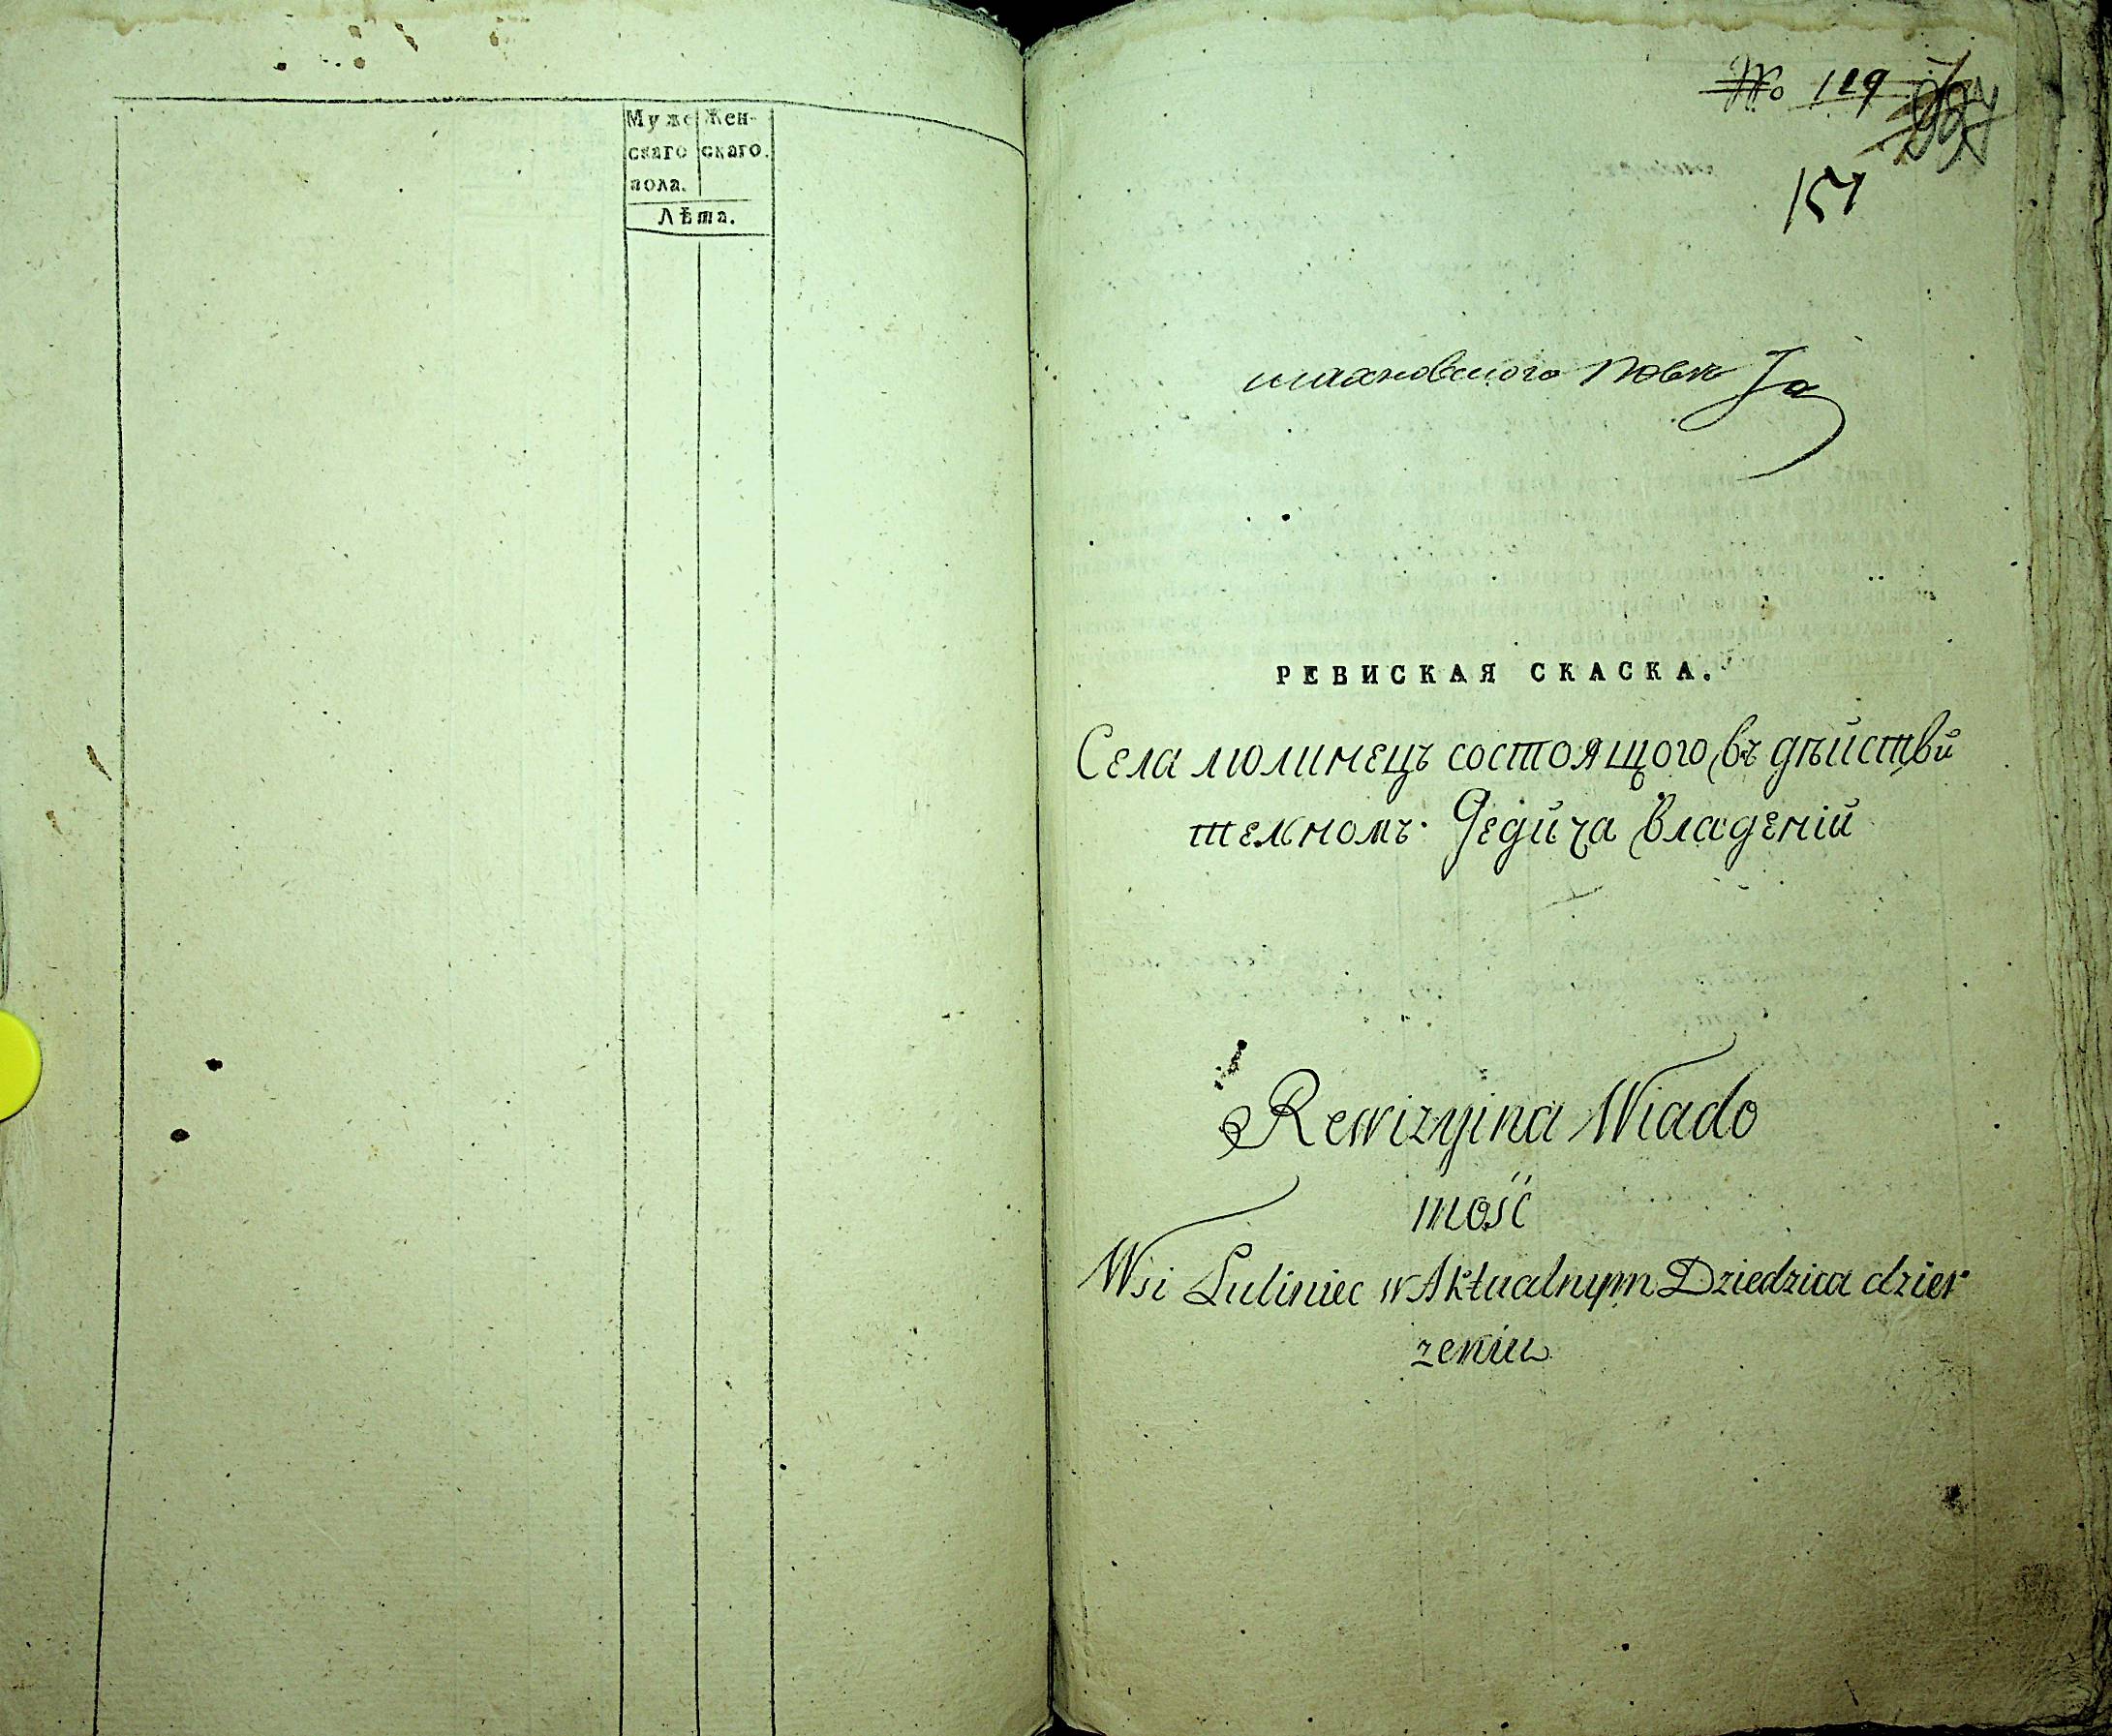 Муже Жен-
скаго скаго.
пола.
Лѣта.
№ 119
151
махновского повѣта
РЕВИСКАЯ СКАСКА.
Села люлинецъ состоящого въ дѣйстви
тельномъ Дедича владеній
Rewizyina Wiado
mość
Wsi Luliniec w Aktualnym Dziedzica dzier
zeniu